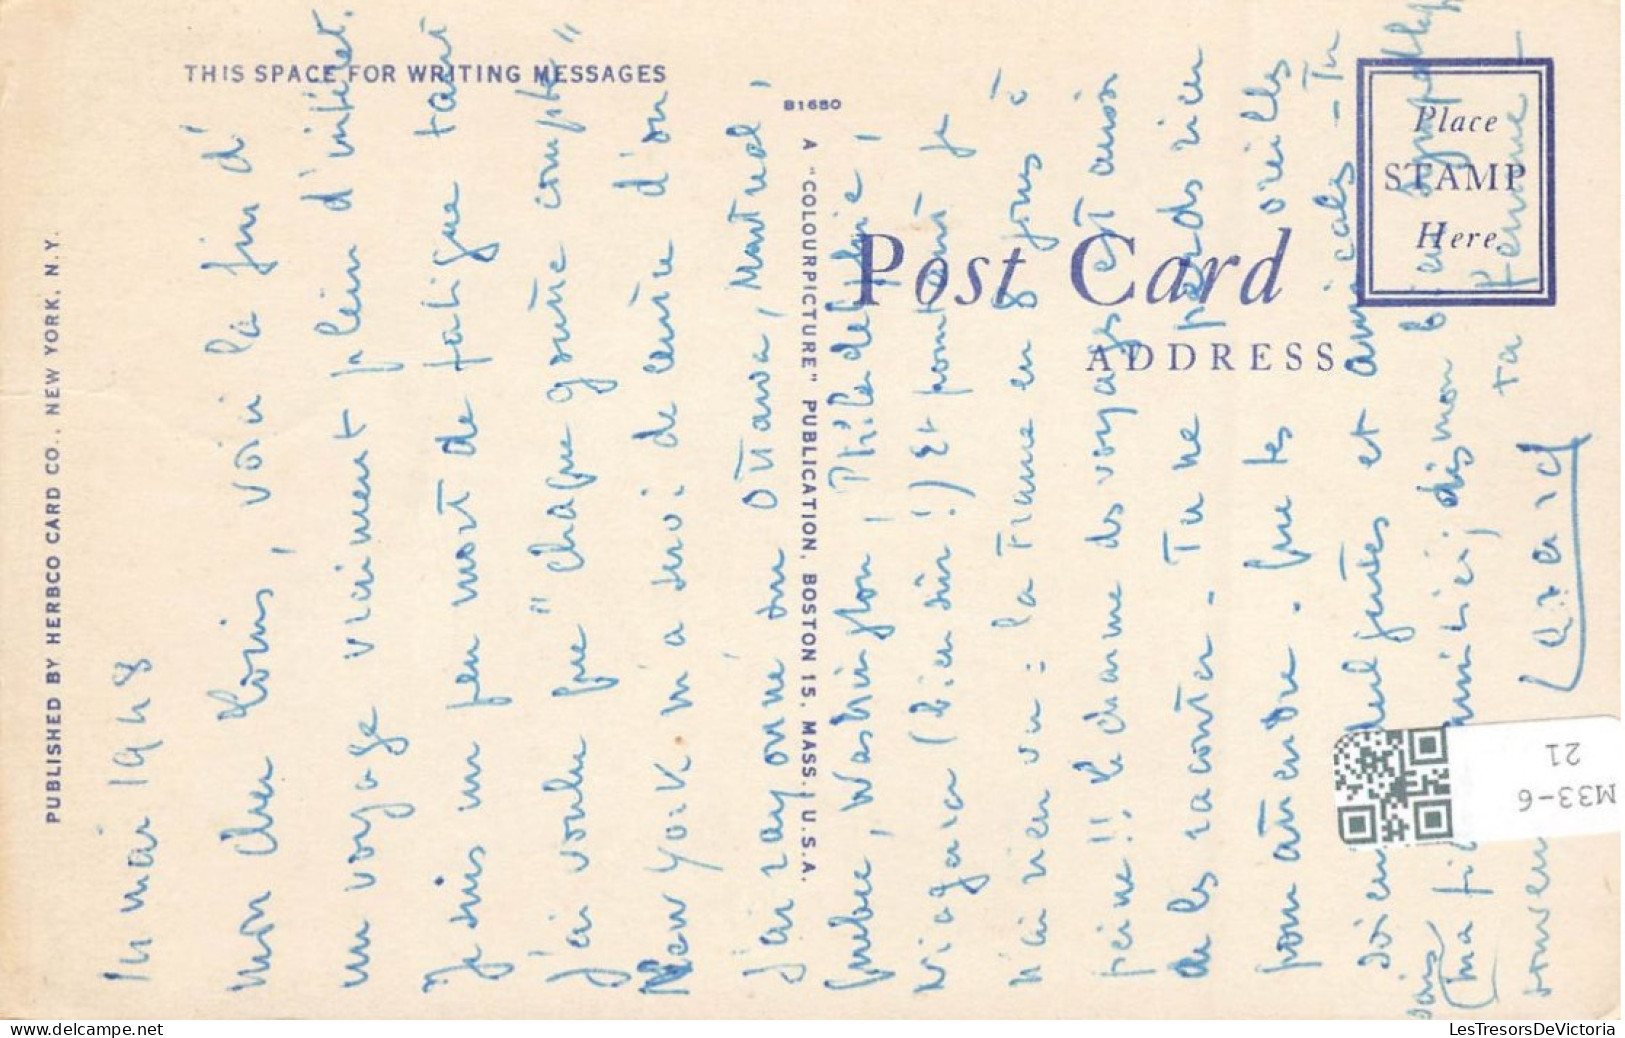 THIS SPACE FOR WRITING MESSAGES
B1680
A "COLOURPICTURE" PUBLICATION, BOSTON 15, MASS., U.S.A.
PUBLISHED BY HERBCO CARD CO., NEW YORK, N.Y.
Post Card
ADDRESS
Place
STAMP
Here
mai 1948
Mon cher Louis, voici la fin d'
un voyage vraiment plein d'intérêt.
Je suis un peu mort de fatigue tant
j'ai voulu que "chaque goutte compte"
New York m'a servi de centre d'où
j'ai rayonné sur Ottawa, Montréal,
Québec, Washington, Philadelphie,
Niagara (bien sûr!) Et pourtant je
n'ai rien vu : la France en 8 jours à
peine!! Le charme des voyages est aussi
de les raconter - Tu ne perds rien
pour attendre. Que tes oreilles
soient et amicales - Tu
sais
(ma dis mon
ta femme -
M33-6
21
LesTresorsDeVictoria